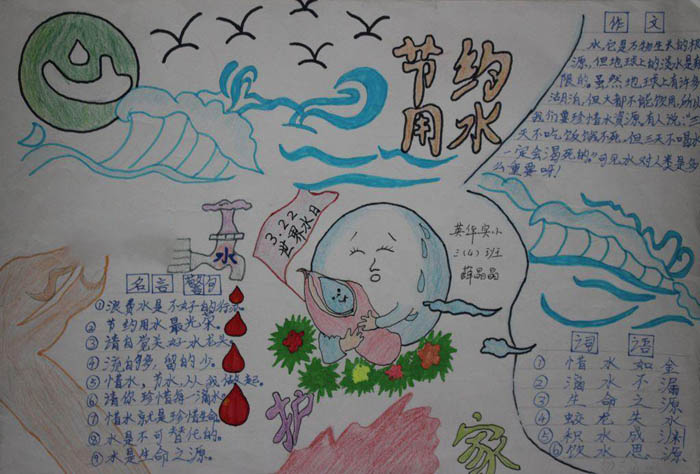 节约
用水
作文
水,它是万物生长的根
源,但地球上的淡水是有
限的。虽然地球上有许多
湖泊,但大都不能饮用,所以
我们要珍惜水资源。有人说:“三
天不吃饭饿不死,但三天不喝水
一定会渴死的。”可见水对人类是多
么重要呀!
3.22
世界水日
英华实小
三(4)班
薛晶晶
水
名言警句
①浪费水是不好的行为。
②节约用水最光荣。
③请自觉关好水龙头。
④流的多,留的少。
⑤惜水,节水,从我做起。
⑥请你珍惜每一滴水。
⑦惜水就是珍惜生命。
⑧水是不可替代的。
⑨水是生命之源。
词语
①惜水如金
②滴水不漏
③生命之源
④蛟龙失水
⑤积水成渊
⑥饮水思源
护
家